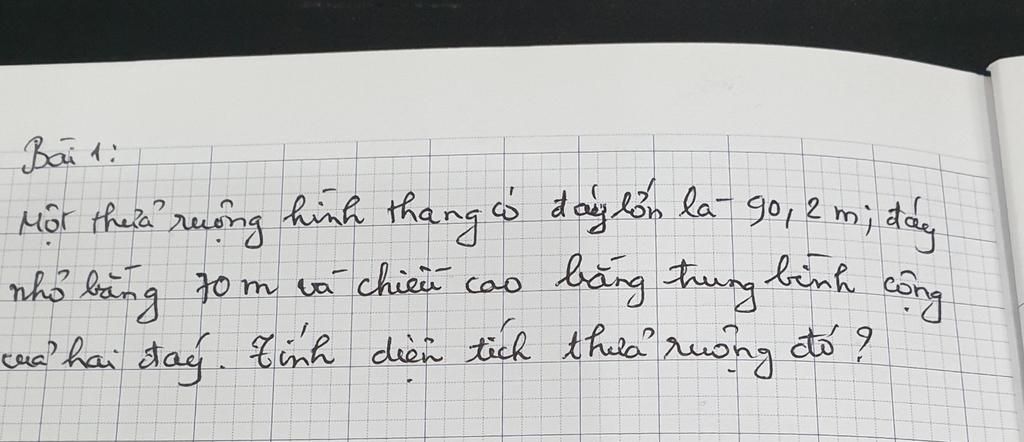 Bài 1:
Một thửa ruộng hình thang có đáy lớn là 90,2 m; đáy
nhỏ bằng 70 m và chiều cao bằng trung bình cộng
của hai đáy. Tính diện tích thửa ruộng đó?